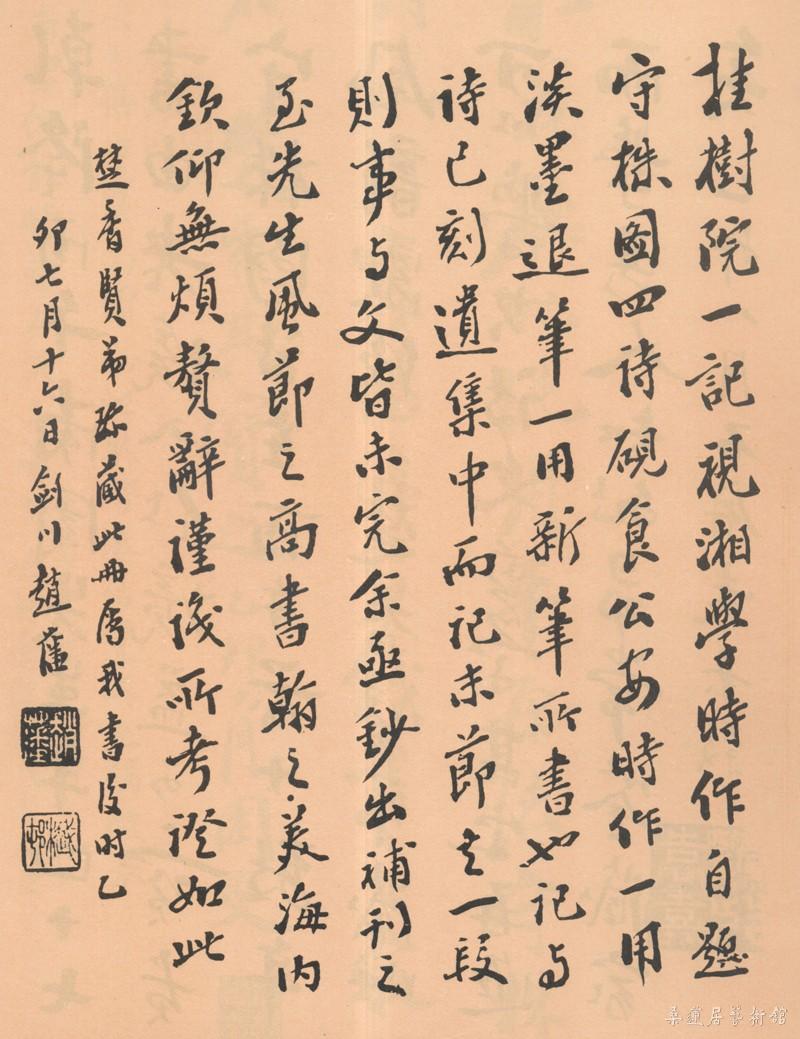 桂樹院一記視湘學時作自題
守株圖四詩硯食公安時作一用
淡墨退筆一用新筆所書也記与
詩已刻遺集中而記末節去一段
則事与文皆未完余亟鈔出補刊之
至先生風節之高書翰之美海内
欽仰無煩贅辭謹識所考證如此
楚香賢弟珎藏此冊属我書後时乙
卯七月十六日劍川趙藩
趙藩
樾邨
桑蓮居藝術館